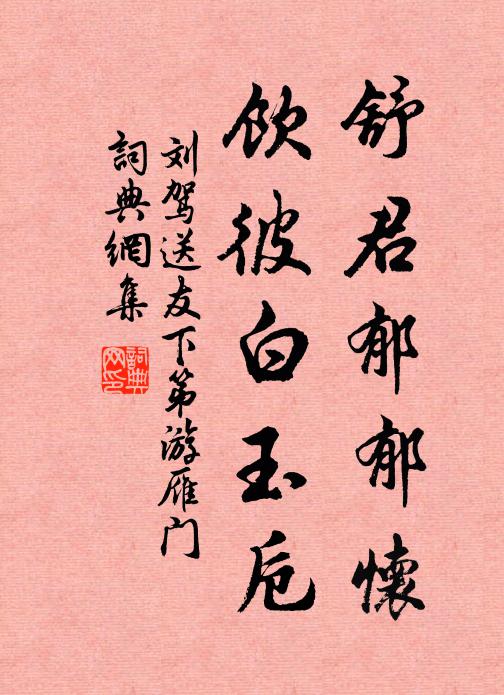 舒君郁郁懷
飲彼白玉卮
刘驾送友下第游雁门
詞典網集
詞典网印